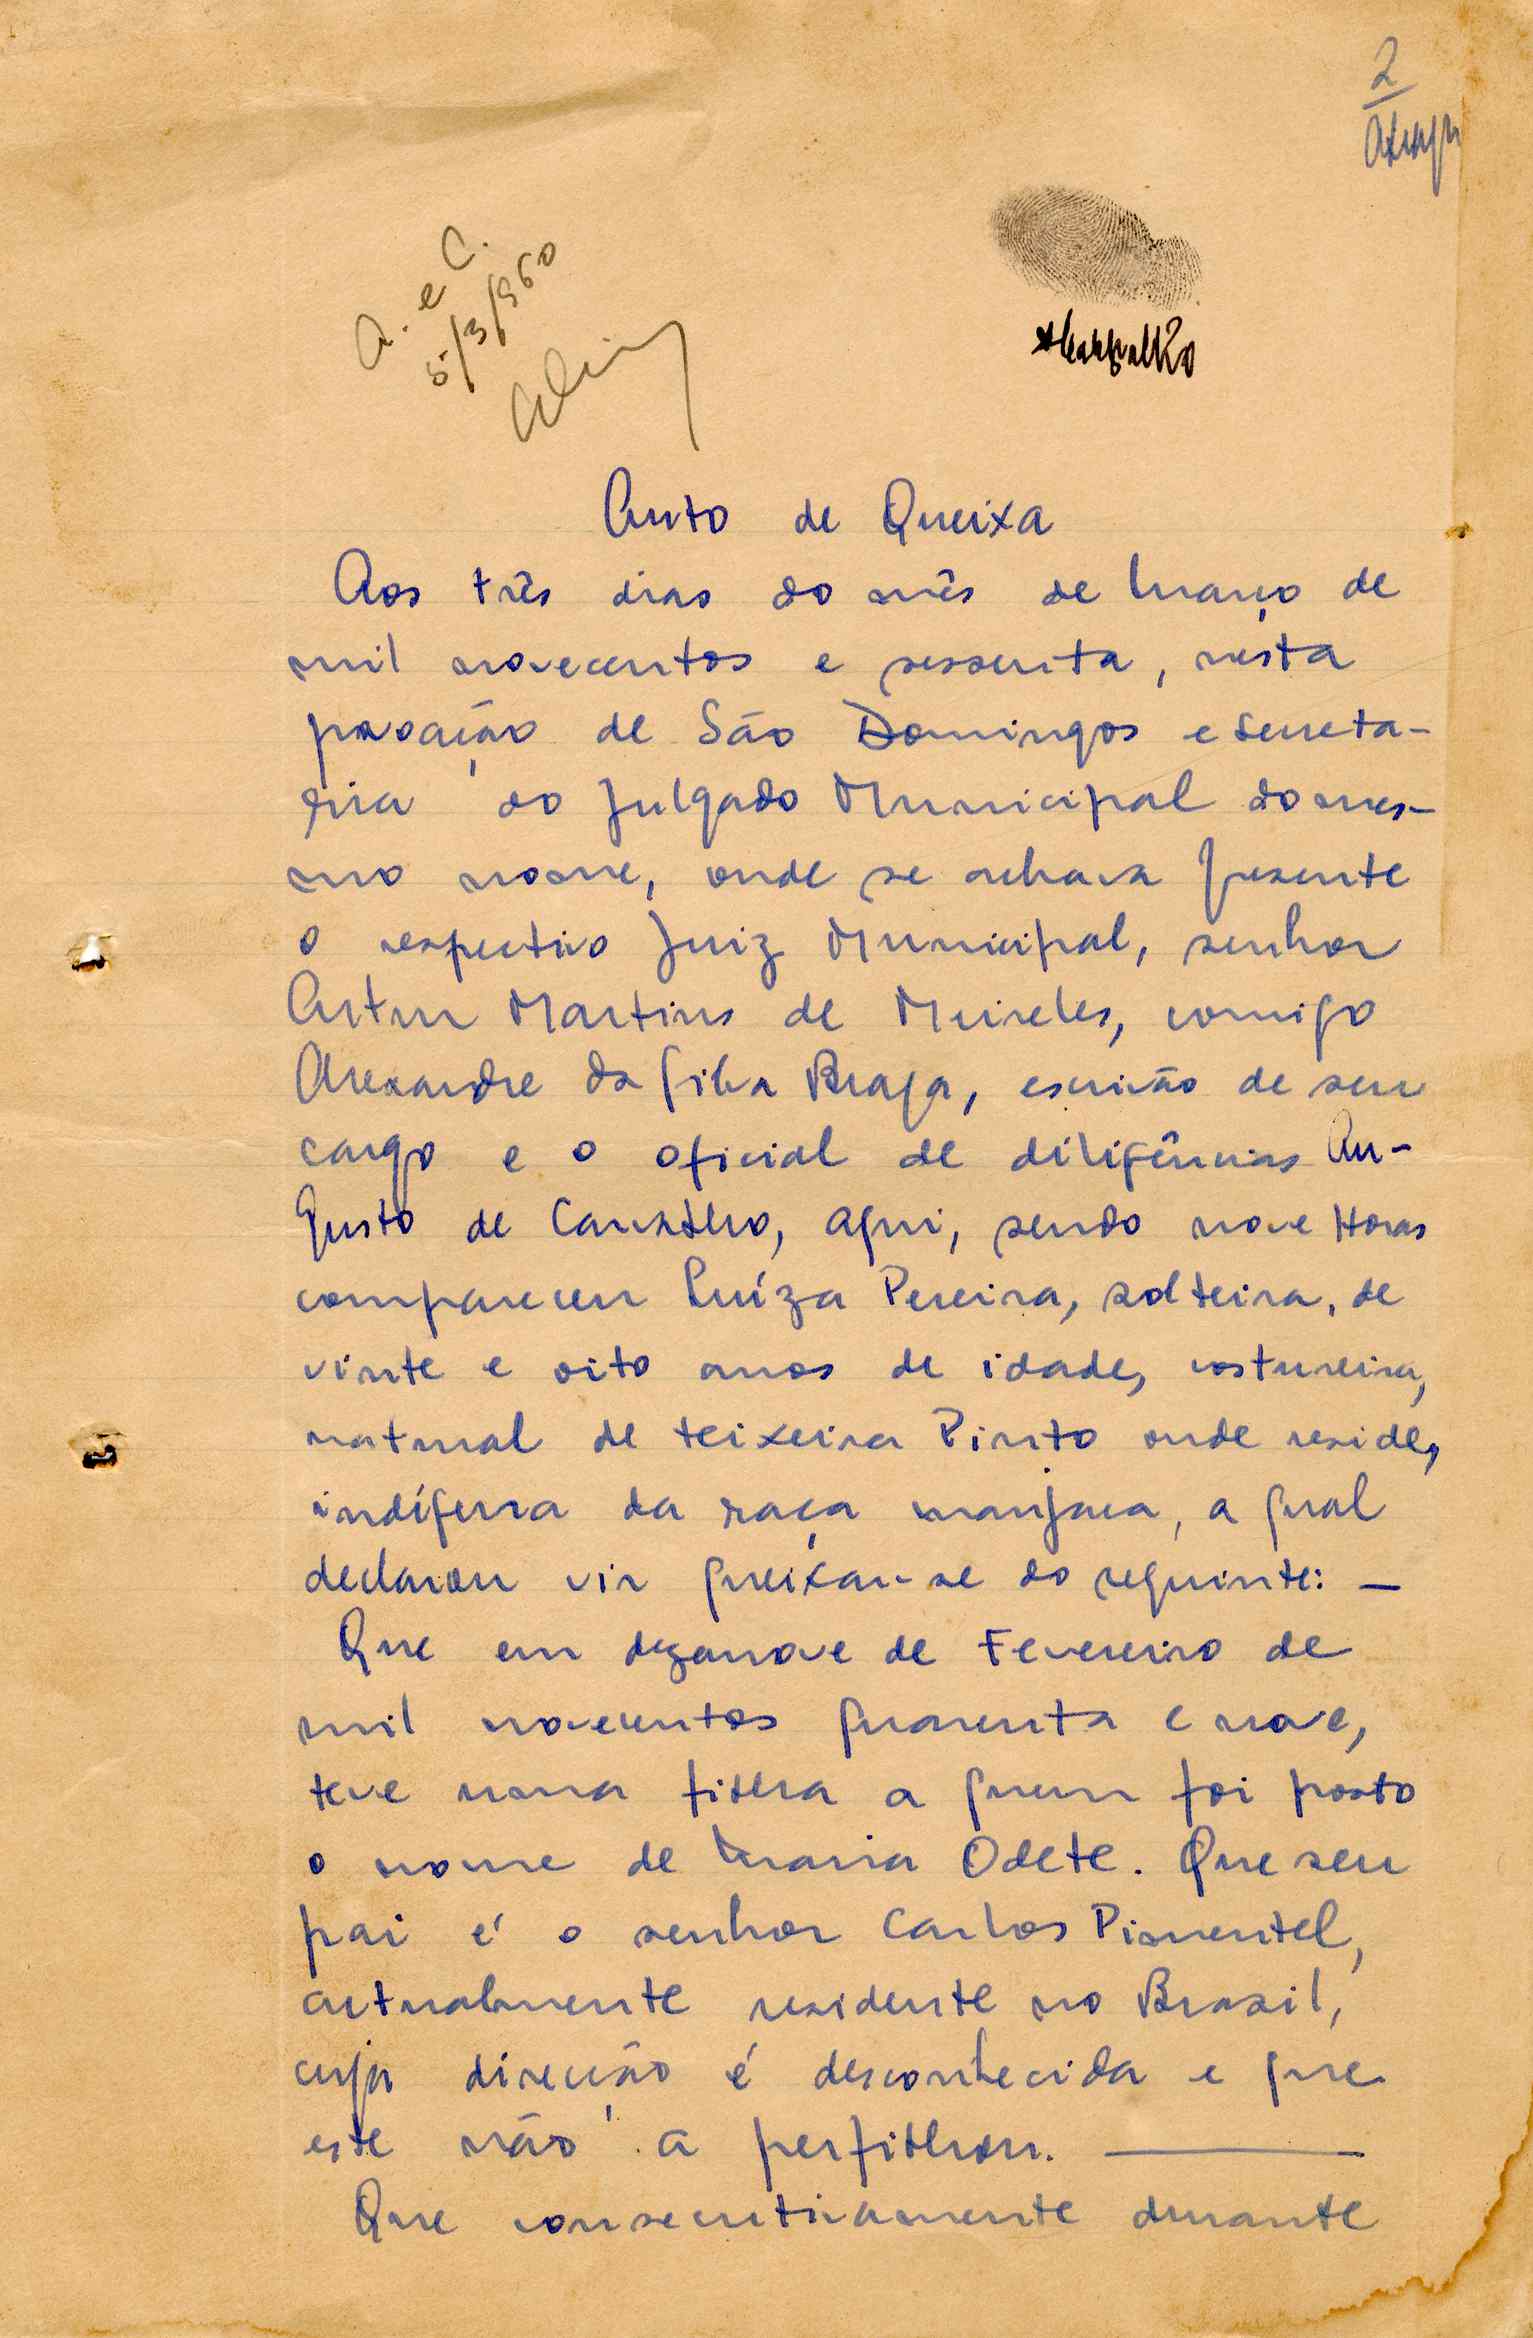 2
A. e C.
5/3/960
Auto de Queixa
Aos três dias do mês de Março de
mil novecentos e sessenta, nesta
povoação de São Domingos e Secreta-
ria do Julgado Municipal do mes-
mo nome, onde se achava presente
o respectivo Juiz Municipal, senhor
Artur Martins de Meireles, comigo
Alexandre da Silva Braga, escrivão de seu
cargo e o oficial de diligências Au-
gusto de Carvalho, aqui, sendo nove Horas
compareceu Luíza Pereira, solteira, de
vinte e oito anos de idade, costureira,
natural de Teixeira Pinto onde reside,
indígena da raça manjaca, a qual
declarou vir queixar-se do seguinte: —
Que em dezanove de Fevereiro de
mil novecentos quarenta e nove,
teve uma filha a quem foi posto
o nome de Maria Odete. Que seu
pai é o senhor Carlos Pimentel,
actualmente residente no Brasil,
cuja direcção é desconhecida e que
este não a perfilhou. ———
Que consecutivamente durante